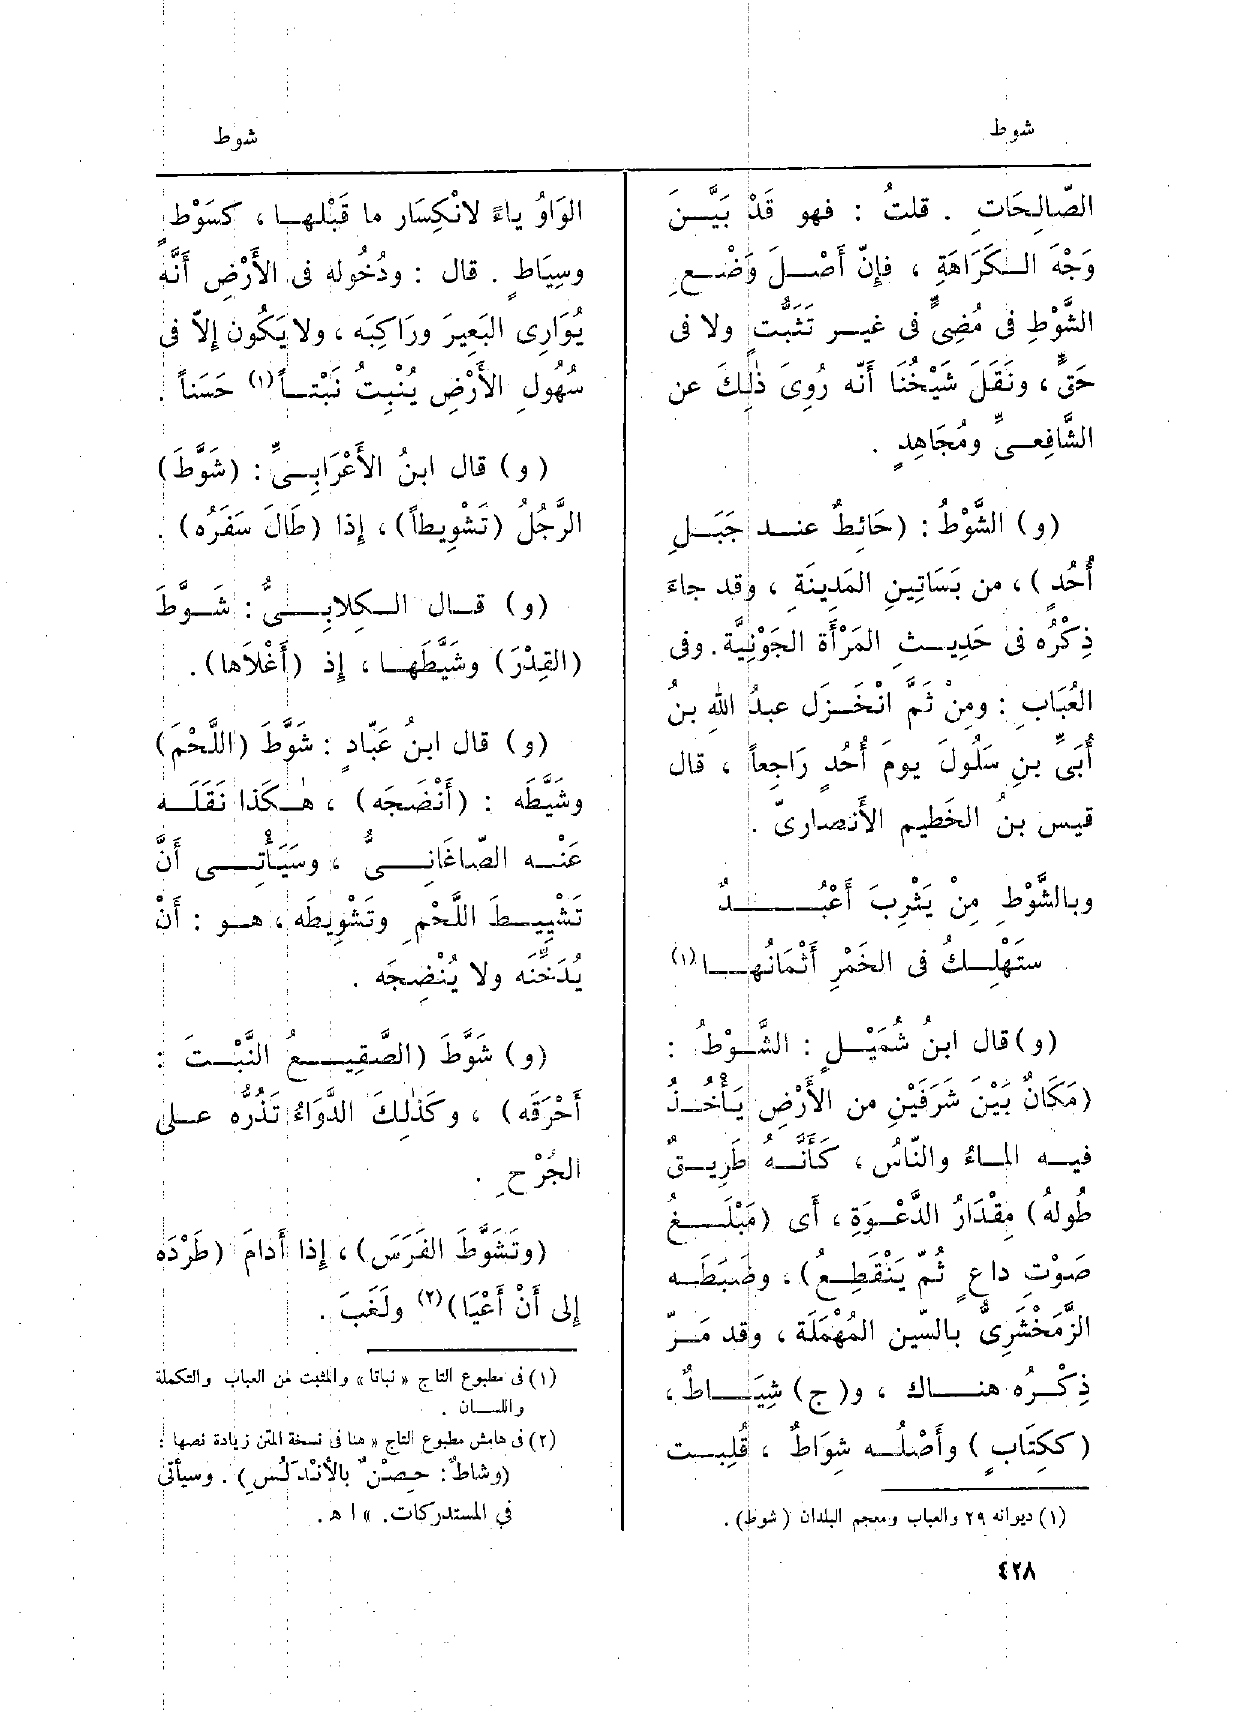 شوط
شوط
الصّالِحَاتِ . قلتُ : فهو قَدْ بَيَّــنَ
وَجْهَ الــكَرَاهَةِ ، فإِنّ أَصْــلَ وَضْــعِ
الشَّوْطِ فى مُضِىٍّ فى غيــر تَثَبُّتٍ ولا فى
حَقٍّ ، ونَقَلَ شَيْخُنَا أَنّه رُوِىَ ذٰلِكَ عن
الشَّافِعــىِّ ومُجَاهِدٍ .
(و) الشَّوْطُ : (حَائِطٌ عنــد جَبَــلِ
أُحُدٍ) ، من بَسَاتِينِ المَدِينَةِ ، وقد جاءَ
ذِكْرُه فى حَدِيــثِ المَرْأَة الجَوْنِيَّة. وفى
العُبَاب : ومِنْ ثَمَّ انْخَــزَل عبدُ الله بنُ
أُبَىِّ بنِ سَلُولَ يومَ أُحُدٍ رَاجِعاً ، قال
قيس بنُ الخَطِيم الأَنصارىّ .
وبالشَّوْطِ مِنْ يَثْرِبَ أَعْبُــــدٌ
ستَهْلِــكُ فى الخَمْرِ أَثْمَانُهــا (١)
(و) قال ابنُ شُمَيْــلٍ : الشَّــوْطُ :
(مَكَانٌ بَيْنَ شَرَفَيْنِ من الأَرْضِ يَأْخُــذُ
فيــه المــاءُ والنَّاسُ ، كَأَنَّــهُ طَرِيــقٌ
طُولهُ) مِقْدَارُ الدَّعْــوَةِ ، أَى (مَبْلَــغُ
صَوْتِ داعٍ ثُمّ يَنْقَطِــعُ) ، وضَبَطَــه
الزَّمَخْشَرِىُّ بالسّين المُهْمَلَة ، وقد مَــرّ
ذِكْــرُه هنــاك ، و(ج) شِيَــاطٌ ،
(ككِتَابٍ) وأَصْلُــه شِوَاطٌ ، قُلِبــت
(١) ديوانه ٢٩ والعباب ومعجم البلدان (شوط) .
٤٢٨
الوَاوُ ياءً لانْكِسَار ما قَبْلهــا ، كسَوْطٍ
وسِيَاطٍ . قال : ودُخُوله فى الأَرْضِ أَنَّه
يُوَارِى البَعِيرَ ورَاكِبَه ، ولا يَكُون إِلاّ فى
سُهُولِ الأَرْضِ يُنْبِتُ نَبْتــاً (١) حَسَناً .
(و) قال ابنُ الأَعْرَابِــىِّ : (شَوَّطَ)
الرَّجُلُ (تَشْوِيطاً) ، إِذا (طَالَ سَفَرُه) .
(و) قــال الــكِلابِــىُّ : شَــوَّطَ
(القِدْرَ) وشَيَّطَهــا ، إِذ (أَغْلَاها) .
(و) قال ابنُ عَبّادٍ : شَوَّطَ (اللَّحْمَ)
وشَيَّطَه : (أَنْضَجَه) ، هٰــكَذا نَقَلَــه
عَنْــه الصّاغَانِــىُّ ، وسَيَأْتــى أَنَّ
تَشْيِيــطَ اللَّحْمِ وتَشْوِيطَه ، هــو : أَنْ
يُدَخِّنَه ولا يُنْضِجَه .
(و) شَوَّطَ (الصَّقِيــعُ النَّبْتَ :
أَحْرَقَه) ، وكَذٰلِكَ الدَّوَاءُ تَذُرُّه علــى
الجُرْحِ .
(وتَشَوَّطَ الفَرَسَ) ، إِذا أَدامَ (طَرْدَه
إِلى أَنْ أَعْيَا) (٢) ولَغَبَ .
(١) فى مطبوع التاج « نباتا » والمثبت من العباب والتكملة
واللسان .
(٢) فى هامش مطبوع التاج « هنا فى نسخة المتن زيادة نصها :
(وشاطٌ: حِصنٌ بالأنْدلُسِ) . وسيأتى
في المستدركات. » ا هـ.